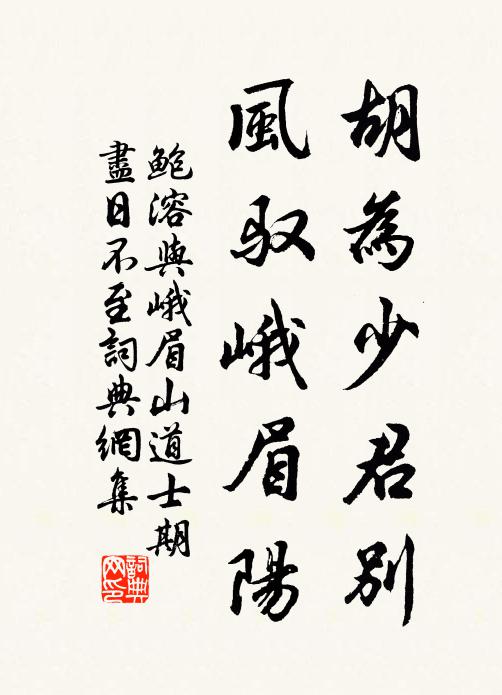 胡為少君別
風馭峨眉陽
鮑溶與峨眉山道士期
盡日不至詞典網集
詞典网印